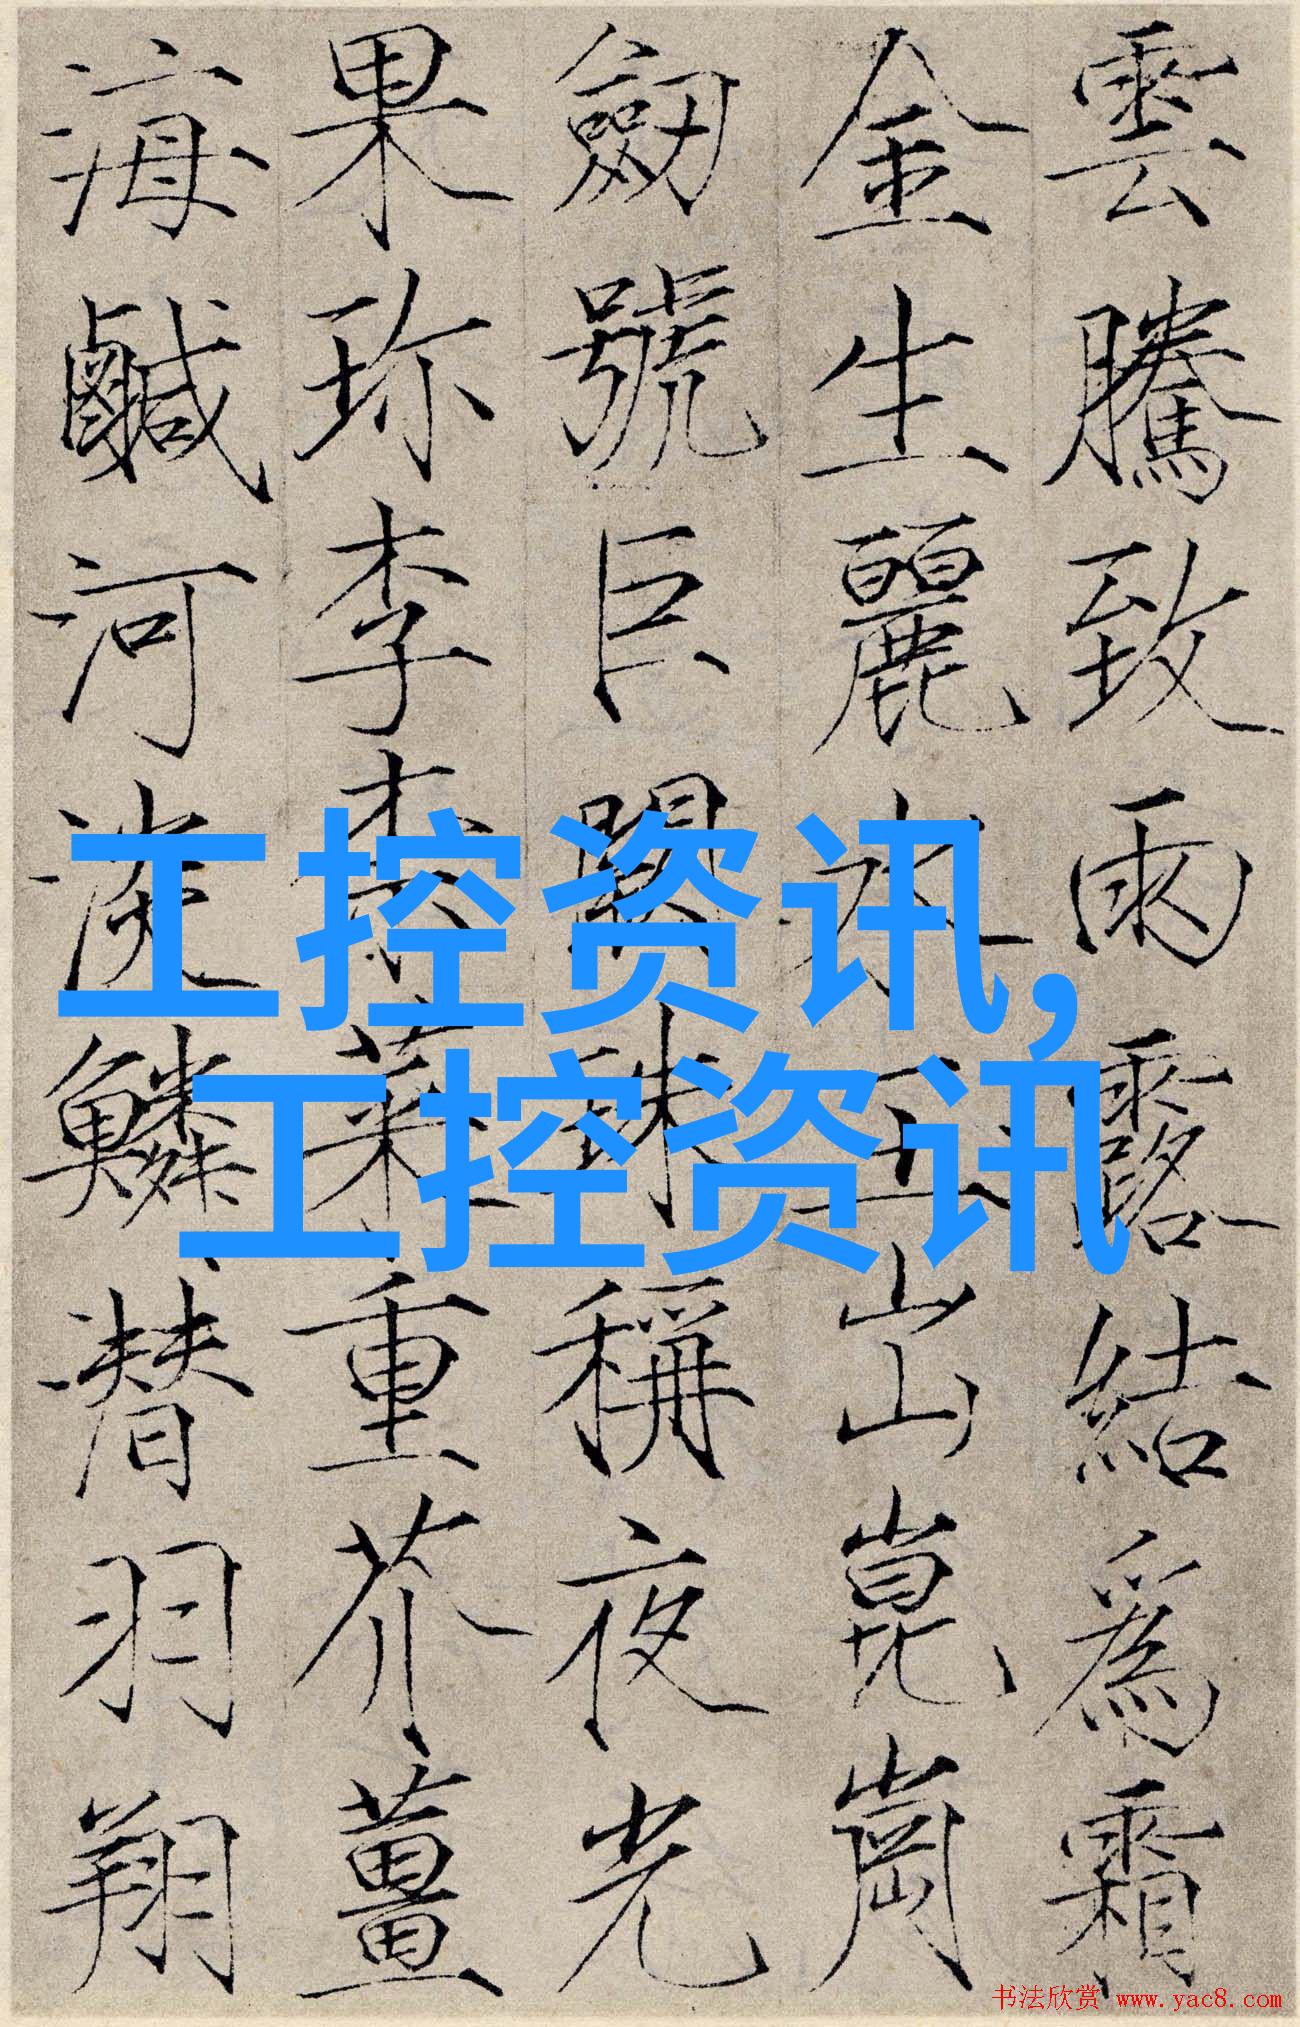 雲騰致雨露結爲霜
金生麗水玉出崑崗
劒號巨闕珠稱夜光
果珎李柰菜重芥薑
海鹹河淡鱗潜羽翔
工控资讯,
工控资讯
书法欣赏 www.yac8.com